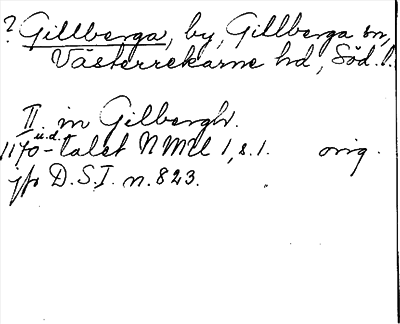 ? Gillberga, by, Gillberga sn,
Västerrekarne hd, Söd. l.
II. in Gilbergh.
u.d.
1170-talet NMU 1, s. 1. orig.
jfr D.S.I. n. 823.